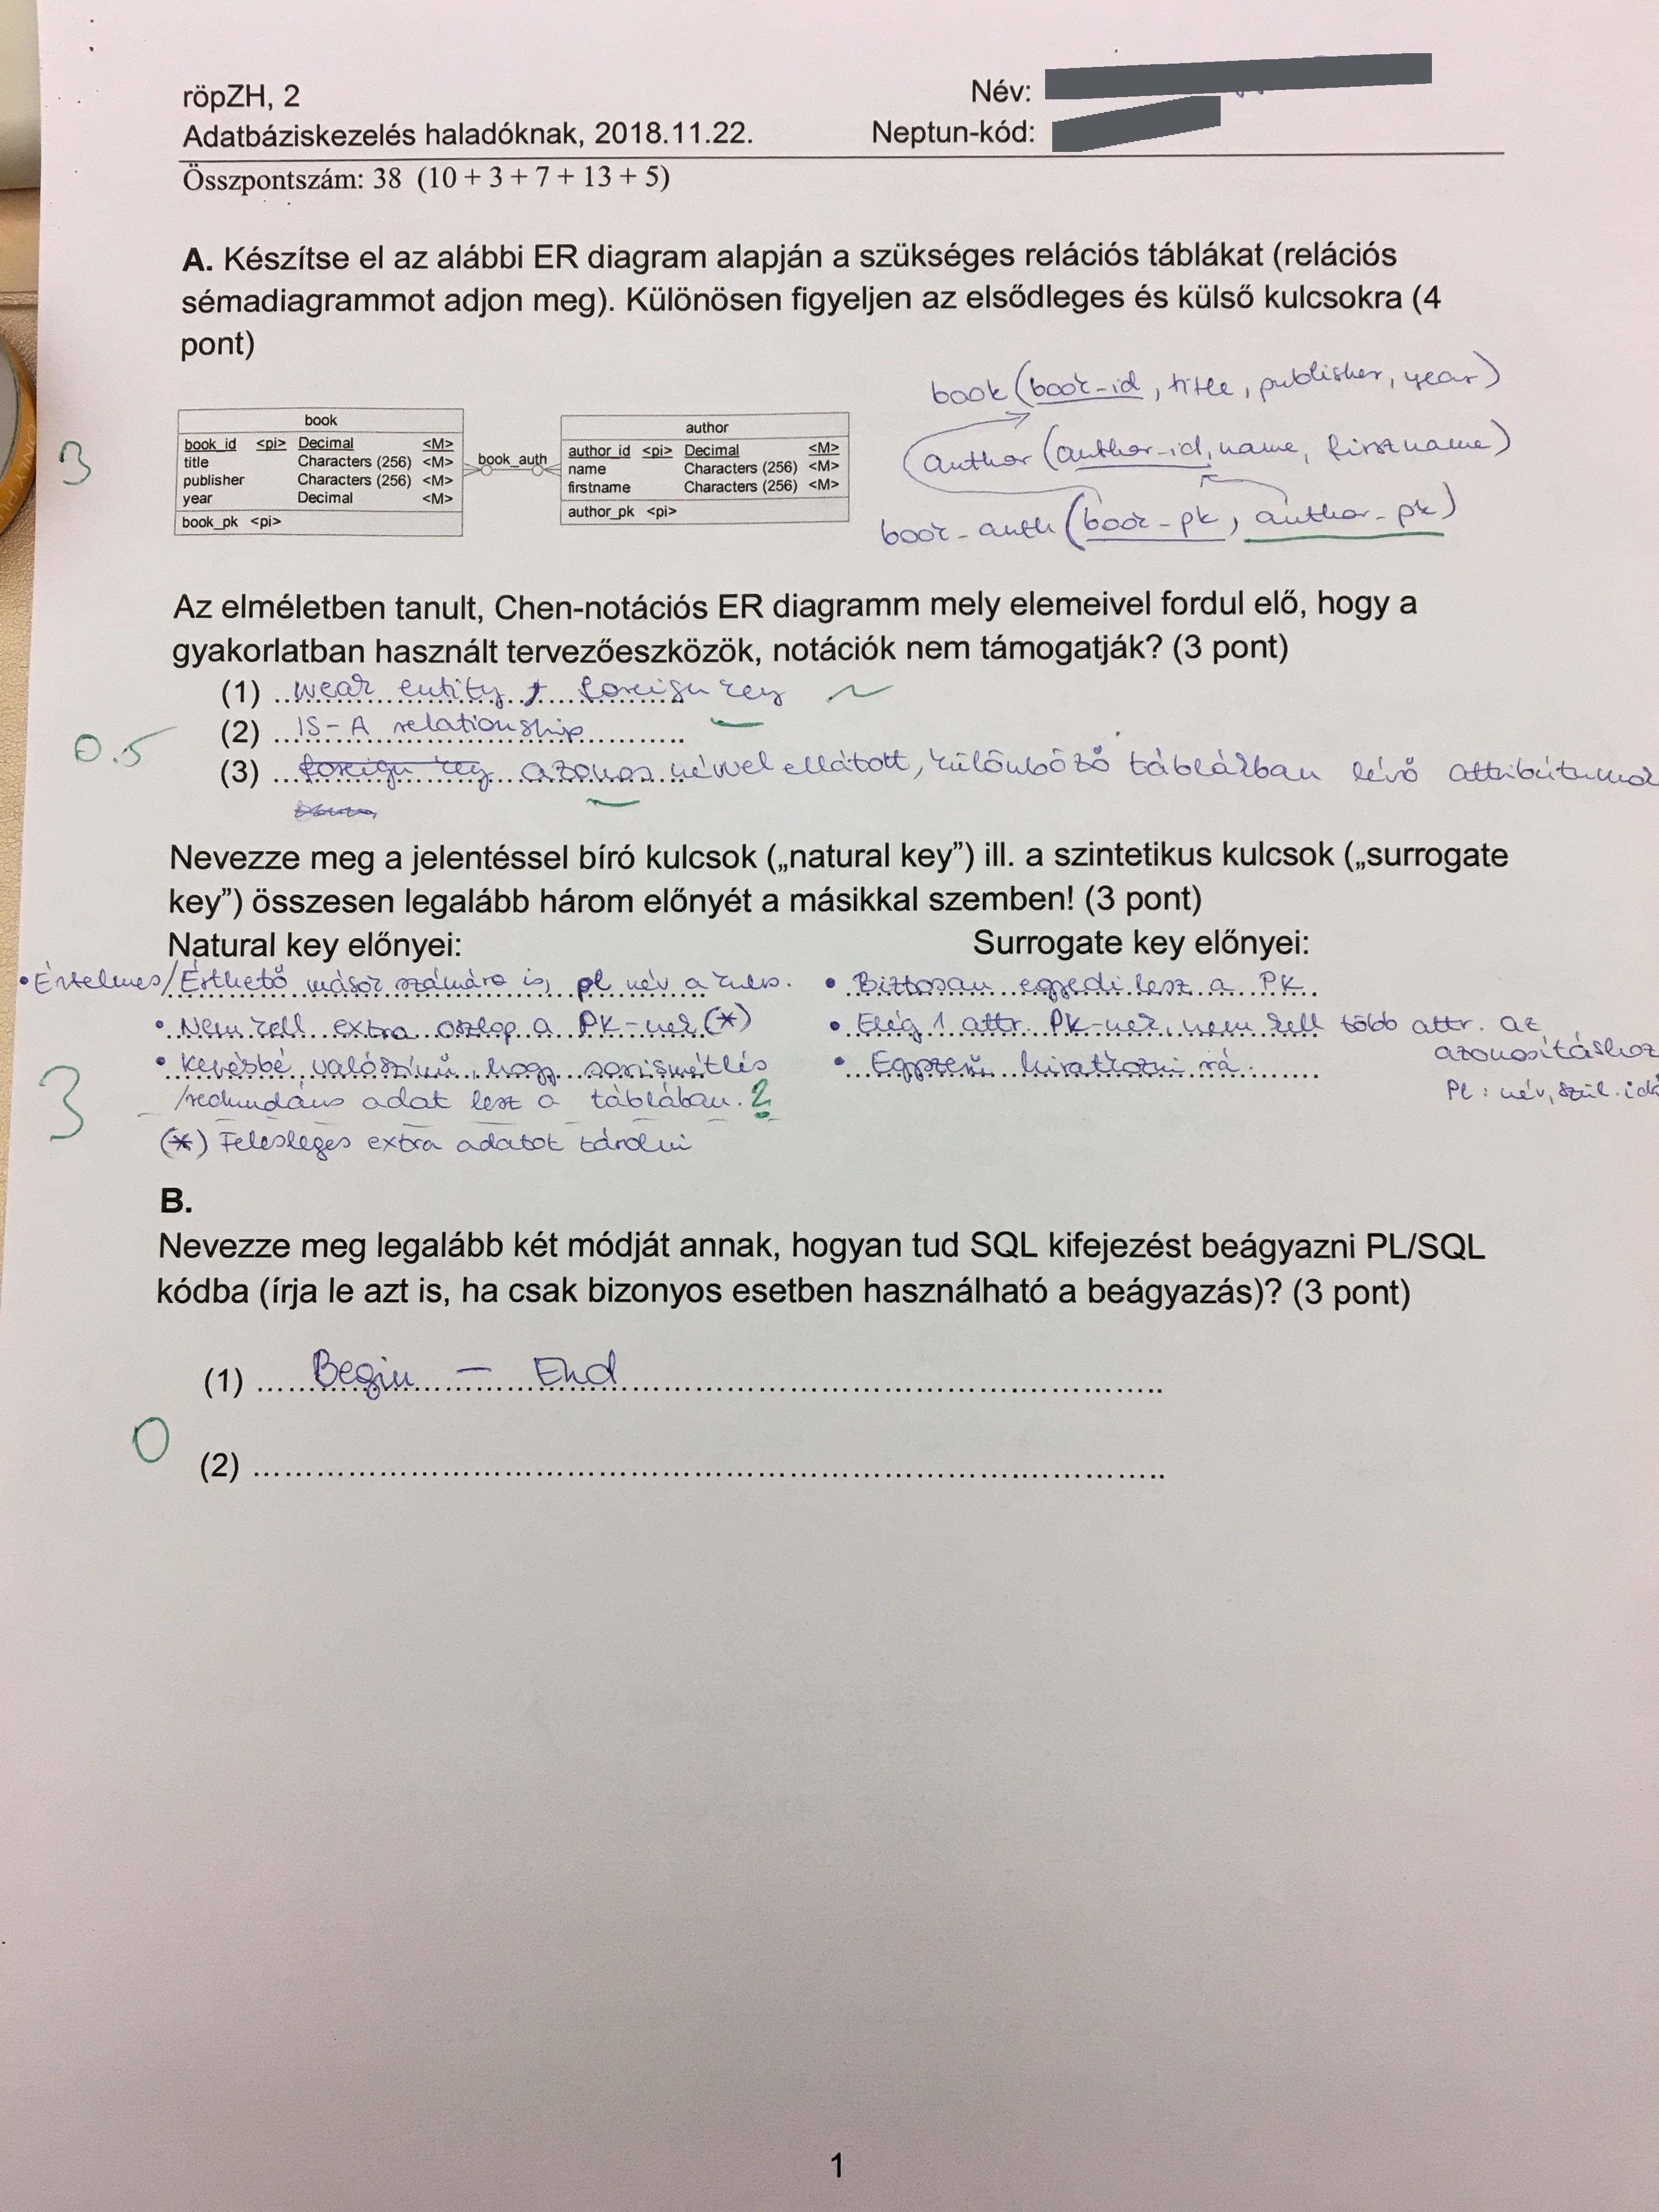 röpZH, 2
Név:
Adatbáziskezelés haladóknak, 2018.11.22.
Neptun-kód:
Összpontszám: 38 (10 + 3 + 7 + 13 + 5)
A. Készítse el az alábbi ER diagram alapján a szükséges relációs táblákat (relációs
sémadiagrammot adjon meg). Különösen figyeljen az elsődleges és külső kulcsokra (4
pont)
3
book
book_id <pi> Decimal <M>
title Characters (256) <M>
publisher Characters (256) <M>
year Decimal <M>
book_pk <pi>
book_auth
author
author_id <pi> Decimal <M>
name Characters (256) <M>
firstname Characters (256) <M>
author_pk <pi>
book (book-id, title, publisher, year)
author (author-id, name, firstname)
book-auth (book-pk, author-pk)
Az elméletben tanult, Chen-notációs ER diagramm mely elemeivel fordul elő, hogy a
gyakorlatban használt tervezőeszközök, notációk nem támogatják? (3 pont)
(1) weak entity + foreign key
(2) IS-A relationship
0.5
(3) foreign key azonos névvel ellátott, különböző táblákban lévő attribútumok
Nevezze meg a jelentéssel bíró kulcsok („natural key”) ill. a szintetikus kulcsok („surrogate
key”) összesen legalább három előnyét a másikkal szemben! (3 pont)
Natural key előnyei:
• Értelmes/Érthető mások számára is, pl név a kulcs.
• Nem kell extra oszlop a PK-nek (*)
• Kevésbé valószínű, hogy sorismétlés
/redundáns adat lesz a táblában. ?
(*) Felesleges extra adatot tárolni
3
Surrogate key előnyei:
• Biztosan egyedi lesz a PK
• Elég 1 attr. PK-nek, nem kell több attr. az
azonosításhoz
Pl: név, szül. idő
• Egyszerű hivatkozni rá.
B.
Nevezze meg legalább két módját annak, hogyan tud SQL kifejezést beágyazni PL/SQL
kódba (írja le azt is, ha csak bizonyos esetben használható a beágyazás)? (3 pont)
(1) Begin - End
0
(2)
1